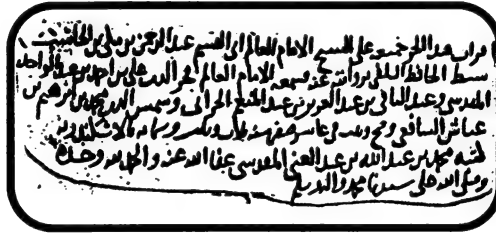 قرات هذا الجزء جميعه على الشيخ الامام العالم ابي القسم عبد الرحمن بن مكي بن الحاسب
سبط الحافظ السلفي بروايته عنه فسمعه الامام العالم فخر الدين علي بن احمد بن عبد الواحد
المقدسي وعبد الباقي بن عبد العزيز بن عبد المنعم الحراني وشمس الدين محمد بن ابرهيم بن
عباش الشافعي وصح وثبت في عاشر صفر سنة وستمائة بالاسكندرية
كتبه محمد بن عبد الله بن عبد الغني المقدسي عفا الله عنه والحمد لله وحده
وصلى الله على سيدنا محمد واله وسلم